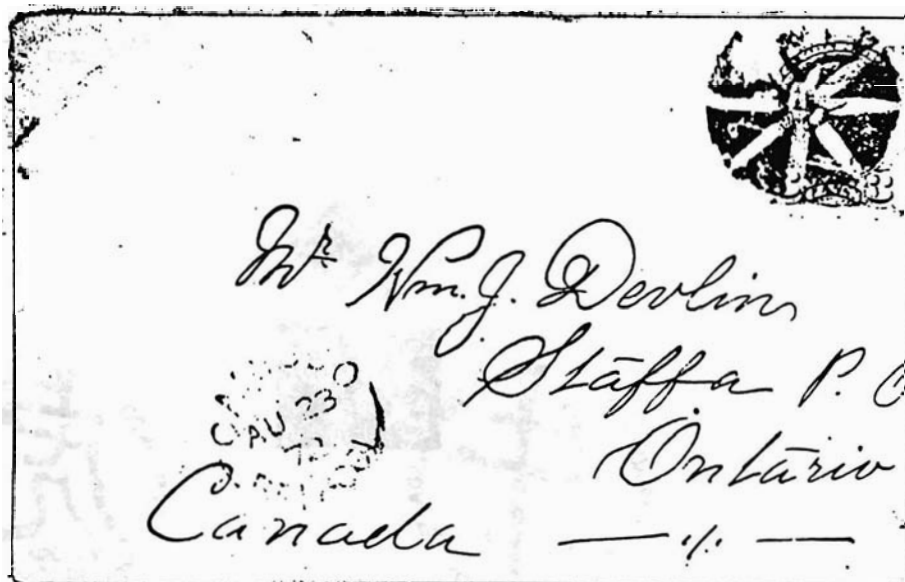 Mr Wm. J. Devlin
Staffa P.
Ontario
AU 23
Canada